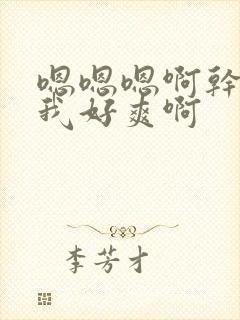 嗯嗯嗯啊幹
我好爽啊
李芳才